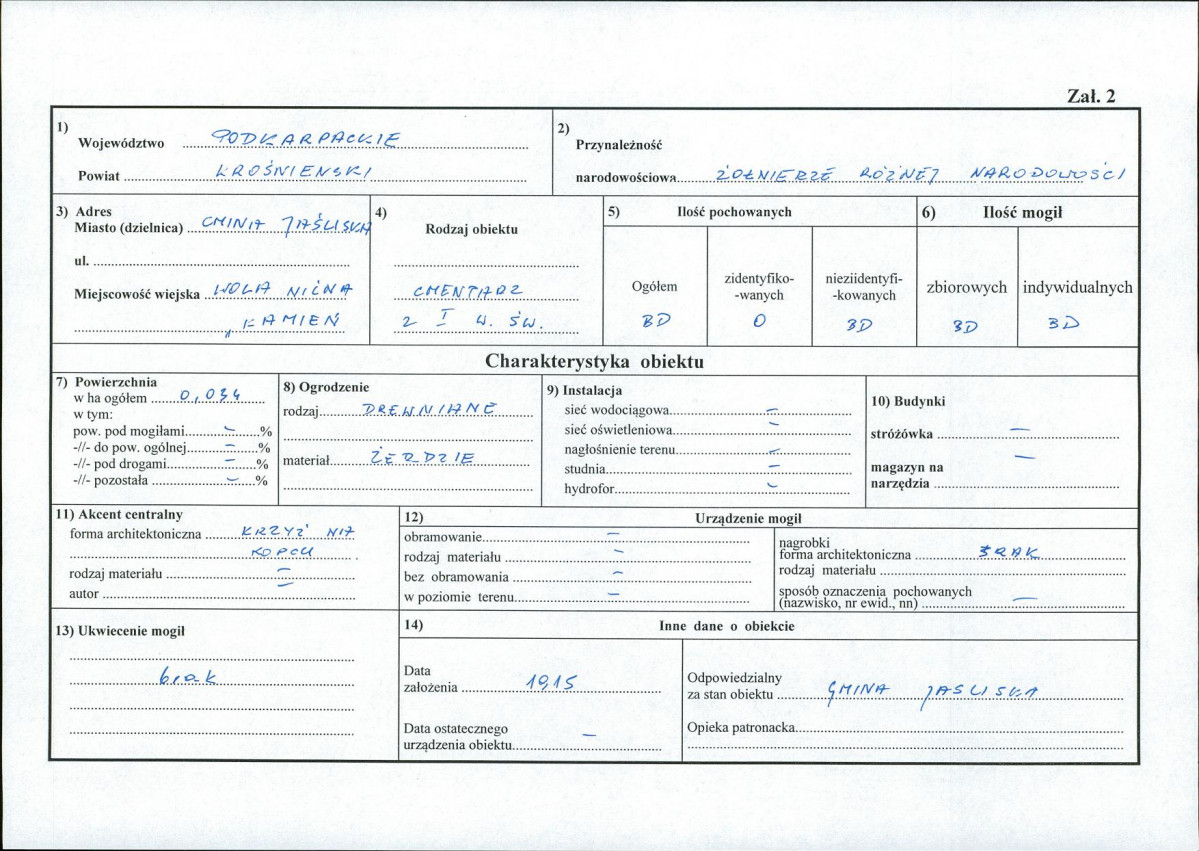 Zał. 2
1)
Województwo PODKARPACKIE
Powiat KROŚNIENSKI
2)
Przynależność
narodowościowa ŻOŁNIERZE RÓŻNEJ NARODOWOŚCI
3) Adres
Miasto (dzielnica) GMINA JAŚLISKA
ul.
Miejscowość wiejska WOLA NIŻNA
„KAMIEŃ
4)
Rodzaj obiektu
CMENTARZ
Z I W. ŚW.
5) Ilość pochowanych
Ogółem
BD
zidentyfiko-
-wanych
0
nieziidentyfi-
-kowanych
BD
6) Ilość mogił
zbiorowych
BD
indywidualnych
BD
Charakterystyka obiektu
7) Powierzchnia
w ha ogółem 0,034
w tym:
pow. pod mogiłami - %
-//- do pow. ogólnej - %
-//- pod drogami - %
-//- pozostała - %
8) Ogrodzenie
rodzaj DREWNIANE
materiał ŻERDZIE
9) Instalacja
sieć wodociągowa -
sieć oświetleniowa -
nagłośnienie terenu -
studnia -
hydrofor -
10) Budynki
stróżówka -
magazyn na -
narzędzia
11) Akcent centralny
forma architektoniczna KRZYŻ NA
KOPCU
rodzaj materiału -
autor -
12) Urządzenie mogił
obramowanie -
rodzaj materiału -
bez obramowania -
w poziomie terenu -
nagrobki
forma architektoniczna BRAK
rodzaj materiału
sposób oznaczenia pochowanych
(nazwisko, nr ewid., nn) -
13) Ukwiecenie mogił
brak
14) Inne dane o obiekcie
Data
założenia 1915
Data ostatecznego
urządzenia obiektu -
Odpowiedzialny
za stan obiektu GMINA JAŚLISKA
Opieka patronacka